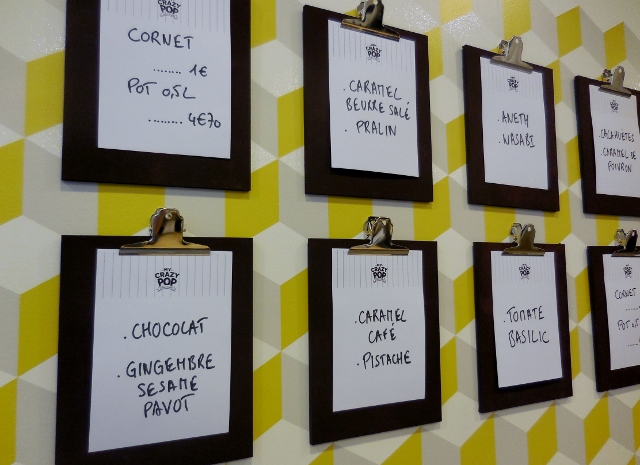 CRAZY
POP
CORNET
........ 1€
POT 0,5L
......... 4€70
MY
CRAZY
POP
. CARAMEL
BEURRE SALÉ
. PRALIN
MY
CRAZY
POP
. ANETH
. WASABI
MY
CRAZY
POP
. CACAHUETES
. CARAMEL DE
POIVRON
MY
CRAZY
POP
. CHOCOLAT
. GINGEMBRE
SESAME
PAVOT
MY
CRAZY
POP
. CARAMEL
CAFÉ
. PISTACHE
MY
CRAZY
POP
. TOMATE
BASILIC
CORNET
POT 0,5